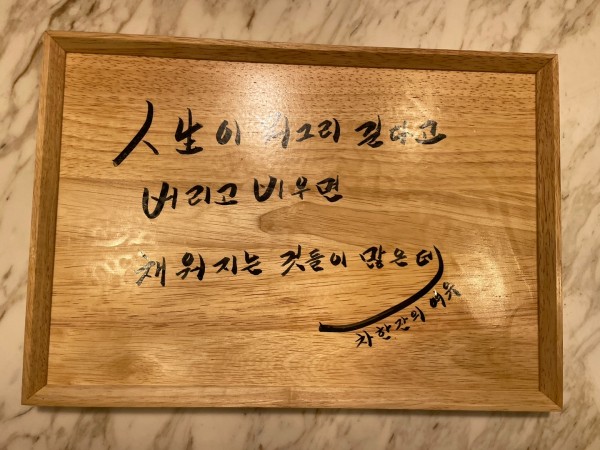 人生이 뭐그리 긴다고
버리고 비우면
채워지는 것들이 많은데
차한잔의 여유